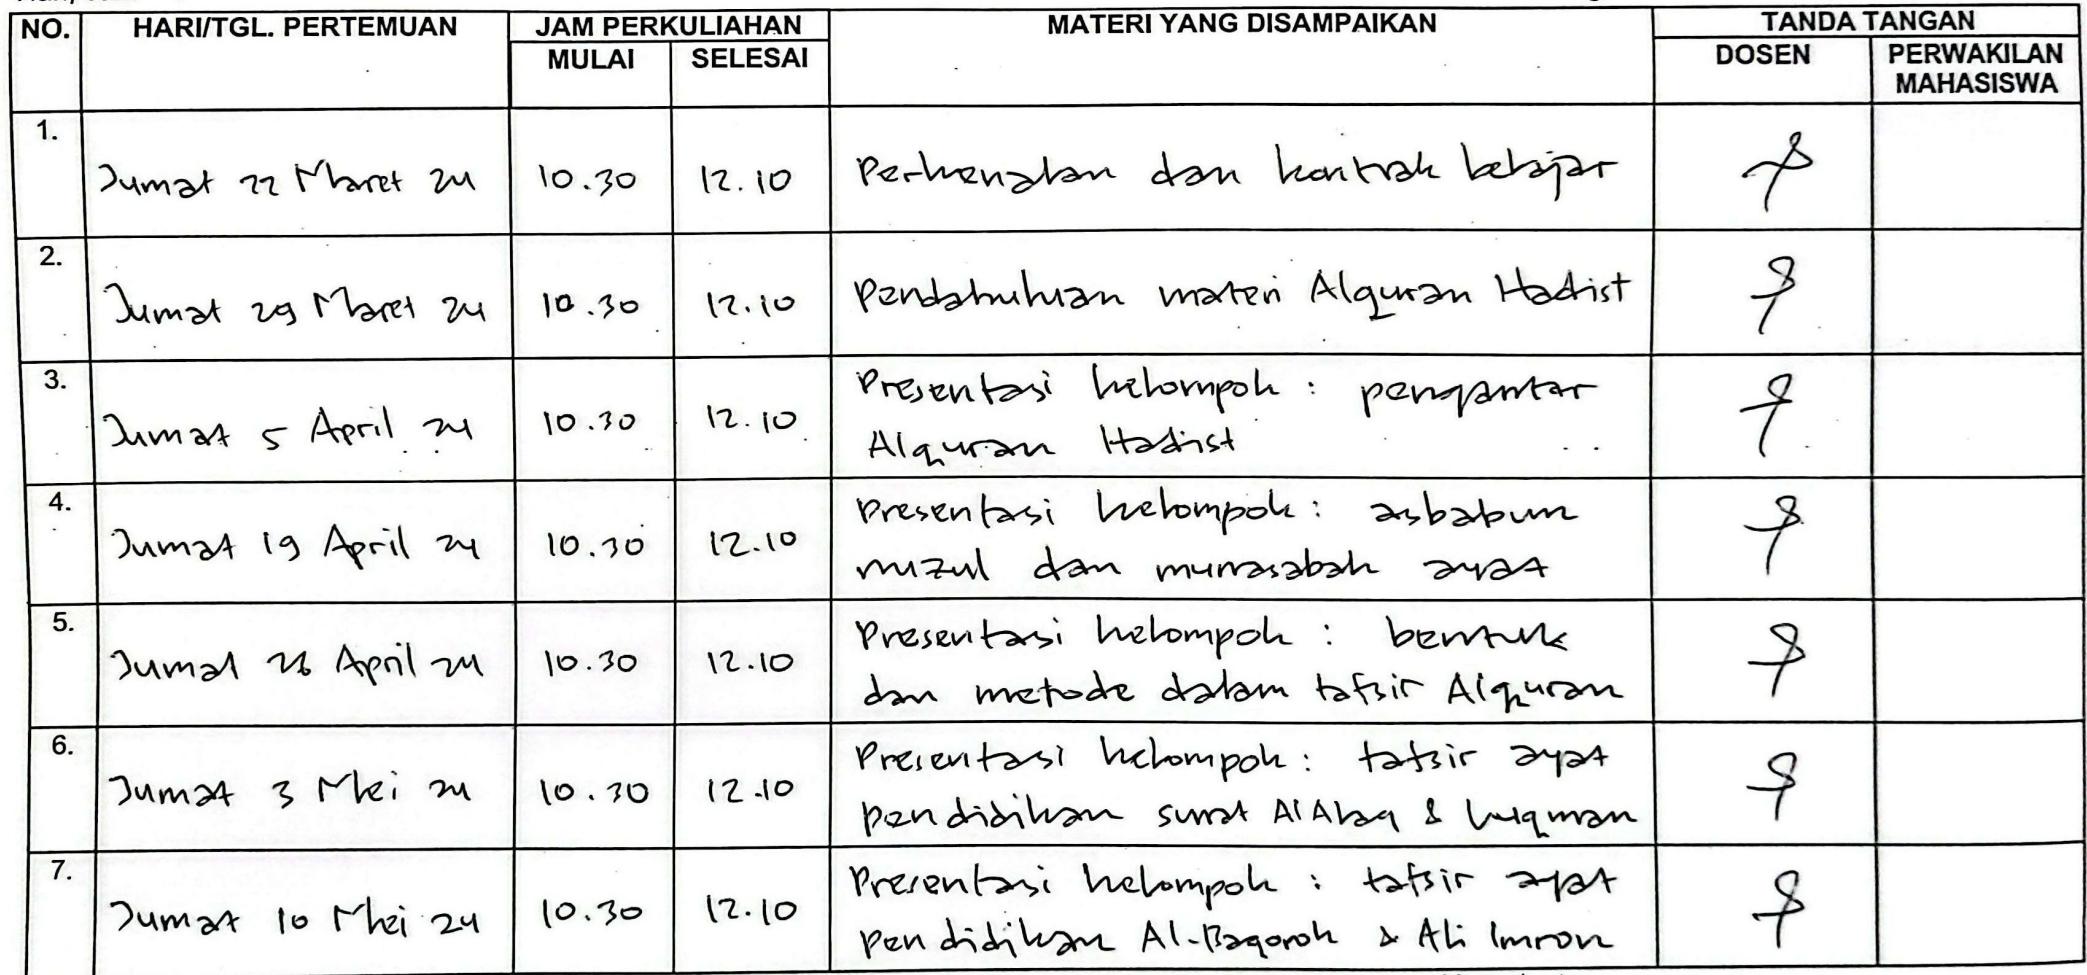 NO. HARI/TGL. PERTEMUAN JAM PERKULIAHAN MATERI YANG DISAMPAIKAN TANDA TANGAN
MULAI SELESAI DOSEN PERWAKILAN
MAHASISWA
1. Jumat 22 Maret 24 10.30 12.10 Perkenalan dan kontrak belajar
2. Jumat 29 Maret 24 10.30 12.10 Pendahuluan materi Alquran Hadist
3. Jumat 5 April 24 10.30 12.10 Presentasi kelompok : pengantar
Alquran Hadist
4. Jumat 19 April 24 10.30 12.10 Presentasi kelompok : asbabun
nuzul dan munasabah ayat
5. Jumat 26 April 24 10.30 12.10 Presentasi kelompok : bentuk
dan metode dalam tafsir Alquran
6. Jumat 3 Mei 24 10.30 12.10 Presentasi kelompok : tafsir ayat
pendidikan surat Al Alaq & Luqman
7. Jumat 10 Mei 24 10.30 12.10 Presentasi kelompok : tafsir ayat
pendidikan Al-Baqoroh & Ali Imron